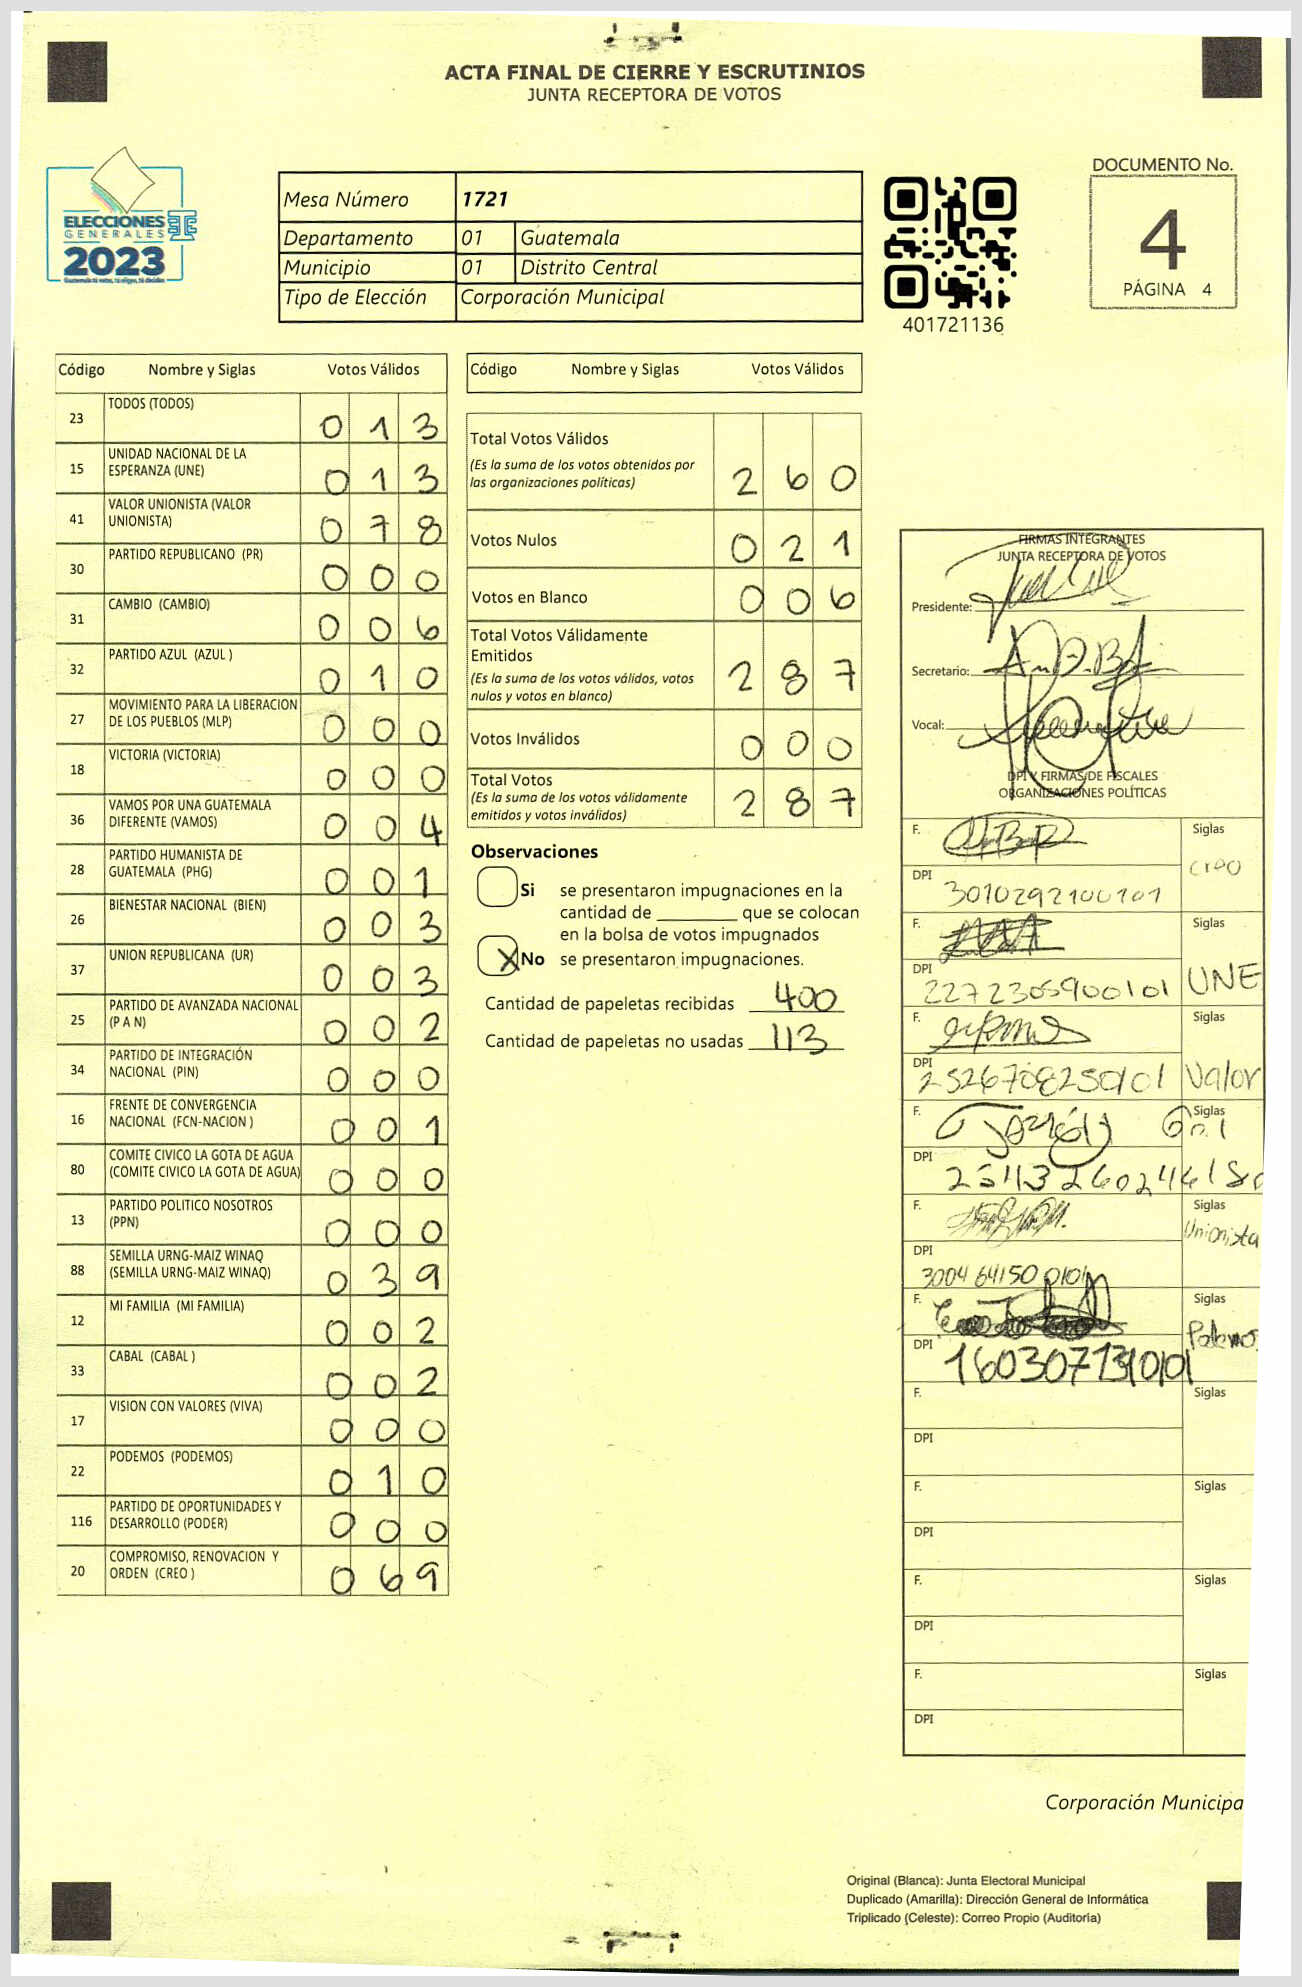 ACTA FINAL DE CIERRE Y ESCRUTINIOS
JUNTA RECEPTORA DE VOTOS
ELECCIONES
GENERALES
2023
Mesa Número 1721
Departamento 01 Guatemala
Municipio 01 Distrito Central
Tipo de Elección Corporación Municipal
401721136
DOCUMENTO No.
4
PÁGINA 4
Código Nombre y Siglas Votos Válidos
23 TODOS (TODOS) 0 1 3
15 UNIDAD NACIONAL DE LA
ESPERANZA (UNE) 0 1 3
41 VALOR UNIONISTA (VALOR
UNIONISTA) 0 7 8
30 PARTIDO REPUBLICANO (PR) 0 0 0
31 CAMBIO (CAMBIO) 0 0 6
32 PARTIDO AZUL (AZUL ) 0 1 0
27 MOVIMIENTO PARA LA LIBERACION
DE LOS PUEBLOS (MLP) 0 0 0
18 VICTORIA (VICTORIA) 0 0 0
36 VAMOS POR UNA GUATEMALA
DIFERENTE (VAMOS) 0 0 4
28 PARTIDO HUMANISTA DE
GUATEMALA (PHG) 0 0 1
26 BIENESTAR NACIONAL (BIEN) 0 0 3
37 UNION REPUBLICANA (UR) 0 0 3
25 PARTIDO DE AVANZADA NACIONAL
(P A N) 0 0 2
34 PARTIDO DE INTEGRACIÓN
NACIONAL (PIN) 0 0 0
16 FRENTE DE CONVERGENCIA
NACIONAL (FCN-NACION ) 0 0 1
80 COMITE CIVICO LA GOTA DE AGUA
(COMITE CIVICO LA GOTA DE AGUA) 0 0 0
13 PARTIDO POLITICO NOSOTROS
(PPN) 0 0 0
88 SEMILLA URNG-MAIZ WINAQ
(SEMILLA URNG-MAIZ WINAQ) 0 3 9
12 MI FAMILIA (MI FAMILIA) 0 0 2
33 CABAL (CABAL ) 0 0 2
17 VISION CON VALORES (VIVA) 0 0 0
22 PODEMOS (PODEMOS) 0 1 0
116 PARTIDO DE OPORTUNIDADES Y
DESARROLLO (PODER) 0 0 0
20 COMPROMISO, RENOVACION Y
ORDEN (CREO ) 0 6 9
Código Nombre y Siglas Votos Válidos
Total Votos Válidos
(Es la suma de los votos obtenidos por
las organizaciones políticas) 2 6 0
Votos Nulos 0 2 1
Votos en Blanco 0 0 6
Total Votos Válidamente
Emitidos
(Es la suma de los votos válidos, votos
nulos y votos en blanco) 2 8 7
Votos Inválidos 0 0 0
Total Votos
(Es la suma de los votos válidamente
emitidos y votos inválidos) 2 8 7
Observaciones
Si se presentaron impugnaciones en la
cantidad de ________ que se colocan
en la bolsa de votos impugnados
X No se presentaron impugnaciones.
Cantidad de papeletas recibidas 400
Cantidad de papeletas no usadas 113
FIRMAS INTEGRANTES
JUNTA RECEPTORA DE VOTOS
Presidente:
Secretario:
Vocal:
DPI Y FIRMAS DE FISCALES
ORGANIZACIONES POLÍTICAS
F. Siglas
creo
DPI 3010292100101
F. Siglas
UNE
DPI 2272305900101
F. Siglas
Valor
DPI
F. Siglas
DPI
F. Siglas
Unionista
DPI 3004 64150 0101
F. Siglas
Podemos
DPI
F. Siglas
DPI
F. Siglas
DPI
F. Siglas
DPI
F. Siglas
DPI
Corporación Municipa
Original (Blanca): Junta Electoral Municipal
Duplicado (Amarilla): Dirección General de Informática
Triplicado (Celeste): Correo Propio (Auditoría)